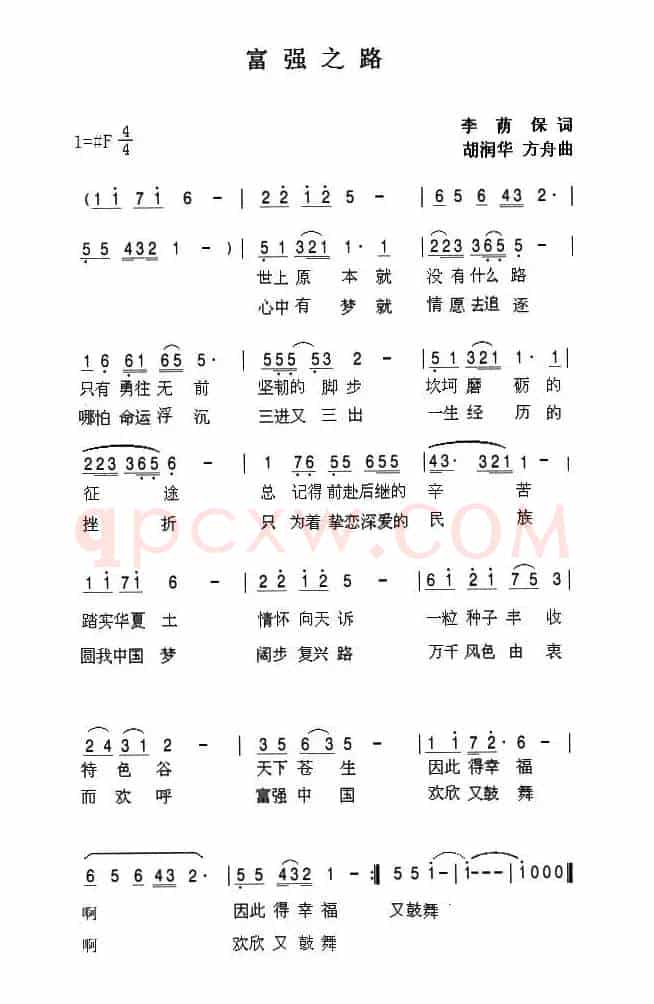 富强之路
李荫保词
1=#F 4/4
胡润华 方舟曲
(1 1 7 1 6 - | 2 2 1 2 5 - | 6 5 6 43 2· |
5 5 432 1 - ) | 5 1 321 1· 1 | 223 365 5 - |
世上原 本就 没有什么路
心中有 梦就 情愿去追逐
1 6 61 65 5· | 555 53 2 - | 51 321 1· 1 |
只有 勇往 无前 坚韧的 脚步 坎坷 磨 砺的
哪怕 命运 浮沉 三进又 三出 一生 经 历的
223 365 6 - | 1 76 55 655 | 43· 321 - |
征 途 总 记得 前赴后继的 辛 苦
挫 折 只 为着 挚恋深爱的 民 族
qpcxw.COM
1 1 7 1 6 - | 2 2 1 2 5 - | 61 21 75 3 |
踏实华夏 土 情怀 向天 诉 一粒 种子 丰 收
圆我中国 梦 阔步 复兴 路 万千 风色 由 衷
24 31 2 - | 35 6 35 - | 1 1 72· 6 - |
特 色 谷 天下 苍 生 因此 得幸 福
而 欢 呼 富强 中 国 欢欣 又鼓 舞
6 5 6 43 2· | 5 5 432 1 - :| 551- | 1 - - - | 1000 ||
啊 因此 得 幸 福 又鼓舞
啊 欢欣 又 鼓 舞